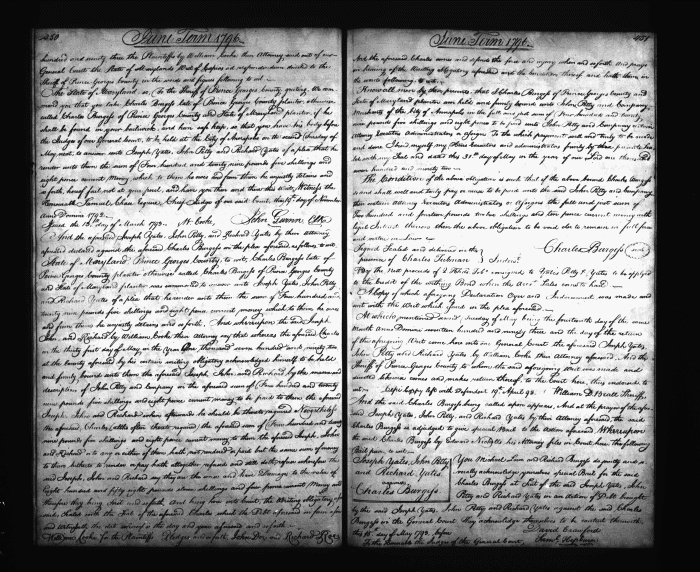 450
June Term 1796.
hundred and ninety three the Plaintiffs by William Cooke their Attorney sued out of our
General Court the State of Maryland's Writ of
Sheriff of Prince Georges County in the words and figures following to wit
The State of Maryland, to the Sheriff of Prince Georges County greeting We com
mand you that you take Charles Burgess late of Prince Georges County planter otherwise
called Charles Burgess of Prince Georges County and State of Maryland planter, if he
shall be found in your bailiwick, and him safe keep, so that you have his body before
the Judges of our General Court, to be held at the City of Annapolis on the second Tuesday of
May next, to answer unto Joseph Yates, John Petty and Richard Yates of a plea that he
render unto them the sum of Four hundred and ninety nine pounds five shillings and
eight pence current Money, which to them he owes and from them he unjustly detains and
so forth, hereof fail not at your peril, and have you then and there this writ, Witness the
Honourable Samuel Chase Esquire, Chief Judge of our said Court
Anno Domini 1792.
Issued the day of March 1793. W. Cooke, John Gwinn Clk
And the aforesaid Joseph Yates, John Petty, and Richard Yates by their attorney
declared against the aforesaid Charles Burgess in the plea aforesaid as follows to wit.
State of Maryland Prince Georges County, to wit, Charles Burgess late of
Prince Georges County planter otherwise called Charles Burgess of Prince Georges County
and State of Maryland planter was summoned to answer unto Joseph Yates John Petty
and Richard Yates of a plea that he render unto them the sum of Four hundred and
ninety nine pounds five shillings and eight pence current money which to them he owes
and from them he unjustly detains and so forth. And whereupon the said Joseph
John, and Richard by William Cooke their attorney say that whereas the aforesaid Charles
on the thirty first day of May in the Year One Thousand seven hundred and ninety two
at the County aforesaid by his certain writing obligatory acknowledged himself to be held
and firmly bound unto them the aforesaid Joseph John and Richard by the name and
description of John Petty and Company in the aforesaid sum of Four hundred and ninety
nine pounds five shillings and eight pence current money, to be paid to them the aforesaid
Joseph John and Richard when afterwards he should be thereto required Nevertheless
the aforesaid Charles altho often thereto required the aforesaid sum of Four hundred and ninety
nine pounds five shillings and eight pence current money to them the aforesaid Joseph, John
and Richard or to any or either of them hath not rendered or paid but the same sum of money
to them hitherto to render or pay hath altogether refused and still doth refuse wherefore the
said Joseph, John and Richard say they are the worse and have Damage to the value of
Eight hundred and fifty eight pounds nineteen shillings and four pence current Money and
therefore they bring suit and so forth. And bring here into Court, the Writing Obligatory afore
said, sealed with the Seal of the aforesaid Charles which the Debt aforesaid in form afore
said
William Cooke for the Plaintiffs Pledges and so forth, John Doe, and Richard Roe

451
June Term 1796.
And the aforesaid Charles comes and defends the force and injury when and so forth and prays
in hearing of the Writing Obligatory aforesaid and the condition thereof and hath them in
the words following to wit.
Know all men by these presents, that I Charles Burgess of Prince Georges County and
State of Maryland planter am held and firmly bound unto John Petty and Company,
Merchants of the City of Annapolis in the full and just sum of Four hundred and ninety
nine pounds five shillings and eight pence to be paid unto John Petty and Company certain
attorney Executors administrators or assigns To the which payment well and truly to be made
and done I bind myself my Heirs Executors and administrators firmly by these presents sea
led with my Seal and dated this 31st day of May in the year of our Lord one thousand
seven hundred and ninety two
The Condition of the above obligation is such that if the above bound Charles Burgess
do and shall well and truly pay or cause to be paid unto the said John Petty and Company
their certain attorney Executors Administrators or Assigns the full and just sum of
Two hundred and fourteen pounds twelve shillings and ten pence current money with
legal Interest thereon then the above obligation to be void else to remain in full force
and virtue in Law
Signed Sealed and delivered in the
presence of Charles Tilman
Charles Burgess
Pay the Nett proceeds of 2 consigned to Yates Petty & Yates to be applied
to the credit of the within Bond when the Acct Sales comes to hand
A Copy of which aforegoing Declaration Oyer and Indorsement was made and
sent with the Writ which first in the plea aforesaid
At which mentioned second Tuesday of May being the fourteenth day of the same
Month Anno Domini seventeen hundred and ninety three and the day of the return
of the aforegoing Writ came here into our General Court the aforesaid Joseph Yates,
John Petty and Richard Yates by William Cooke their Attorney aforesaid. And the
Sheriff of Prince Georges County to whom the said aforegoing Writ was made and
directed likewise comes and makes return thereof, to the Court here, thus endorsed to
wit. Copy left with Defendant 19th April 93. William D. Beall Sheriff.
And the said Charles Burgess being called appears, And at the prayer of the afore
said Joseph Yates, John Petty, and Richard Yates by their Attorney aforesaid, the said
Charles Burgess is adjudged to give special Bail to the Action aforesaid Whereupon
the said Charles Burgess by Edward Nicholls his Attorney files in Court here the following
Bail piece to wit
Joseph Yates, John Petty
and Richard Yates
against
Charles Burgess
You Michael Lowe and Richard Burgess do jointly and se
verally acknowledge yourselves special Bail for the said
Charles Burgess at Suit of the said Joseph Yates, John
Petty and Richard Yates in an action of Debt brought
by the said Joseph Yates, John Petty, and Richard Yates against the said Charles
Burgess in the General Court. They acknowledge themselves to be content therewith
this 18th day of May 1793. before
David Crauford
To the Honorable the Judges of the General Court. Saml. Hepburn